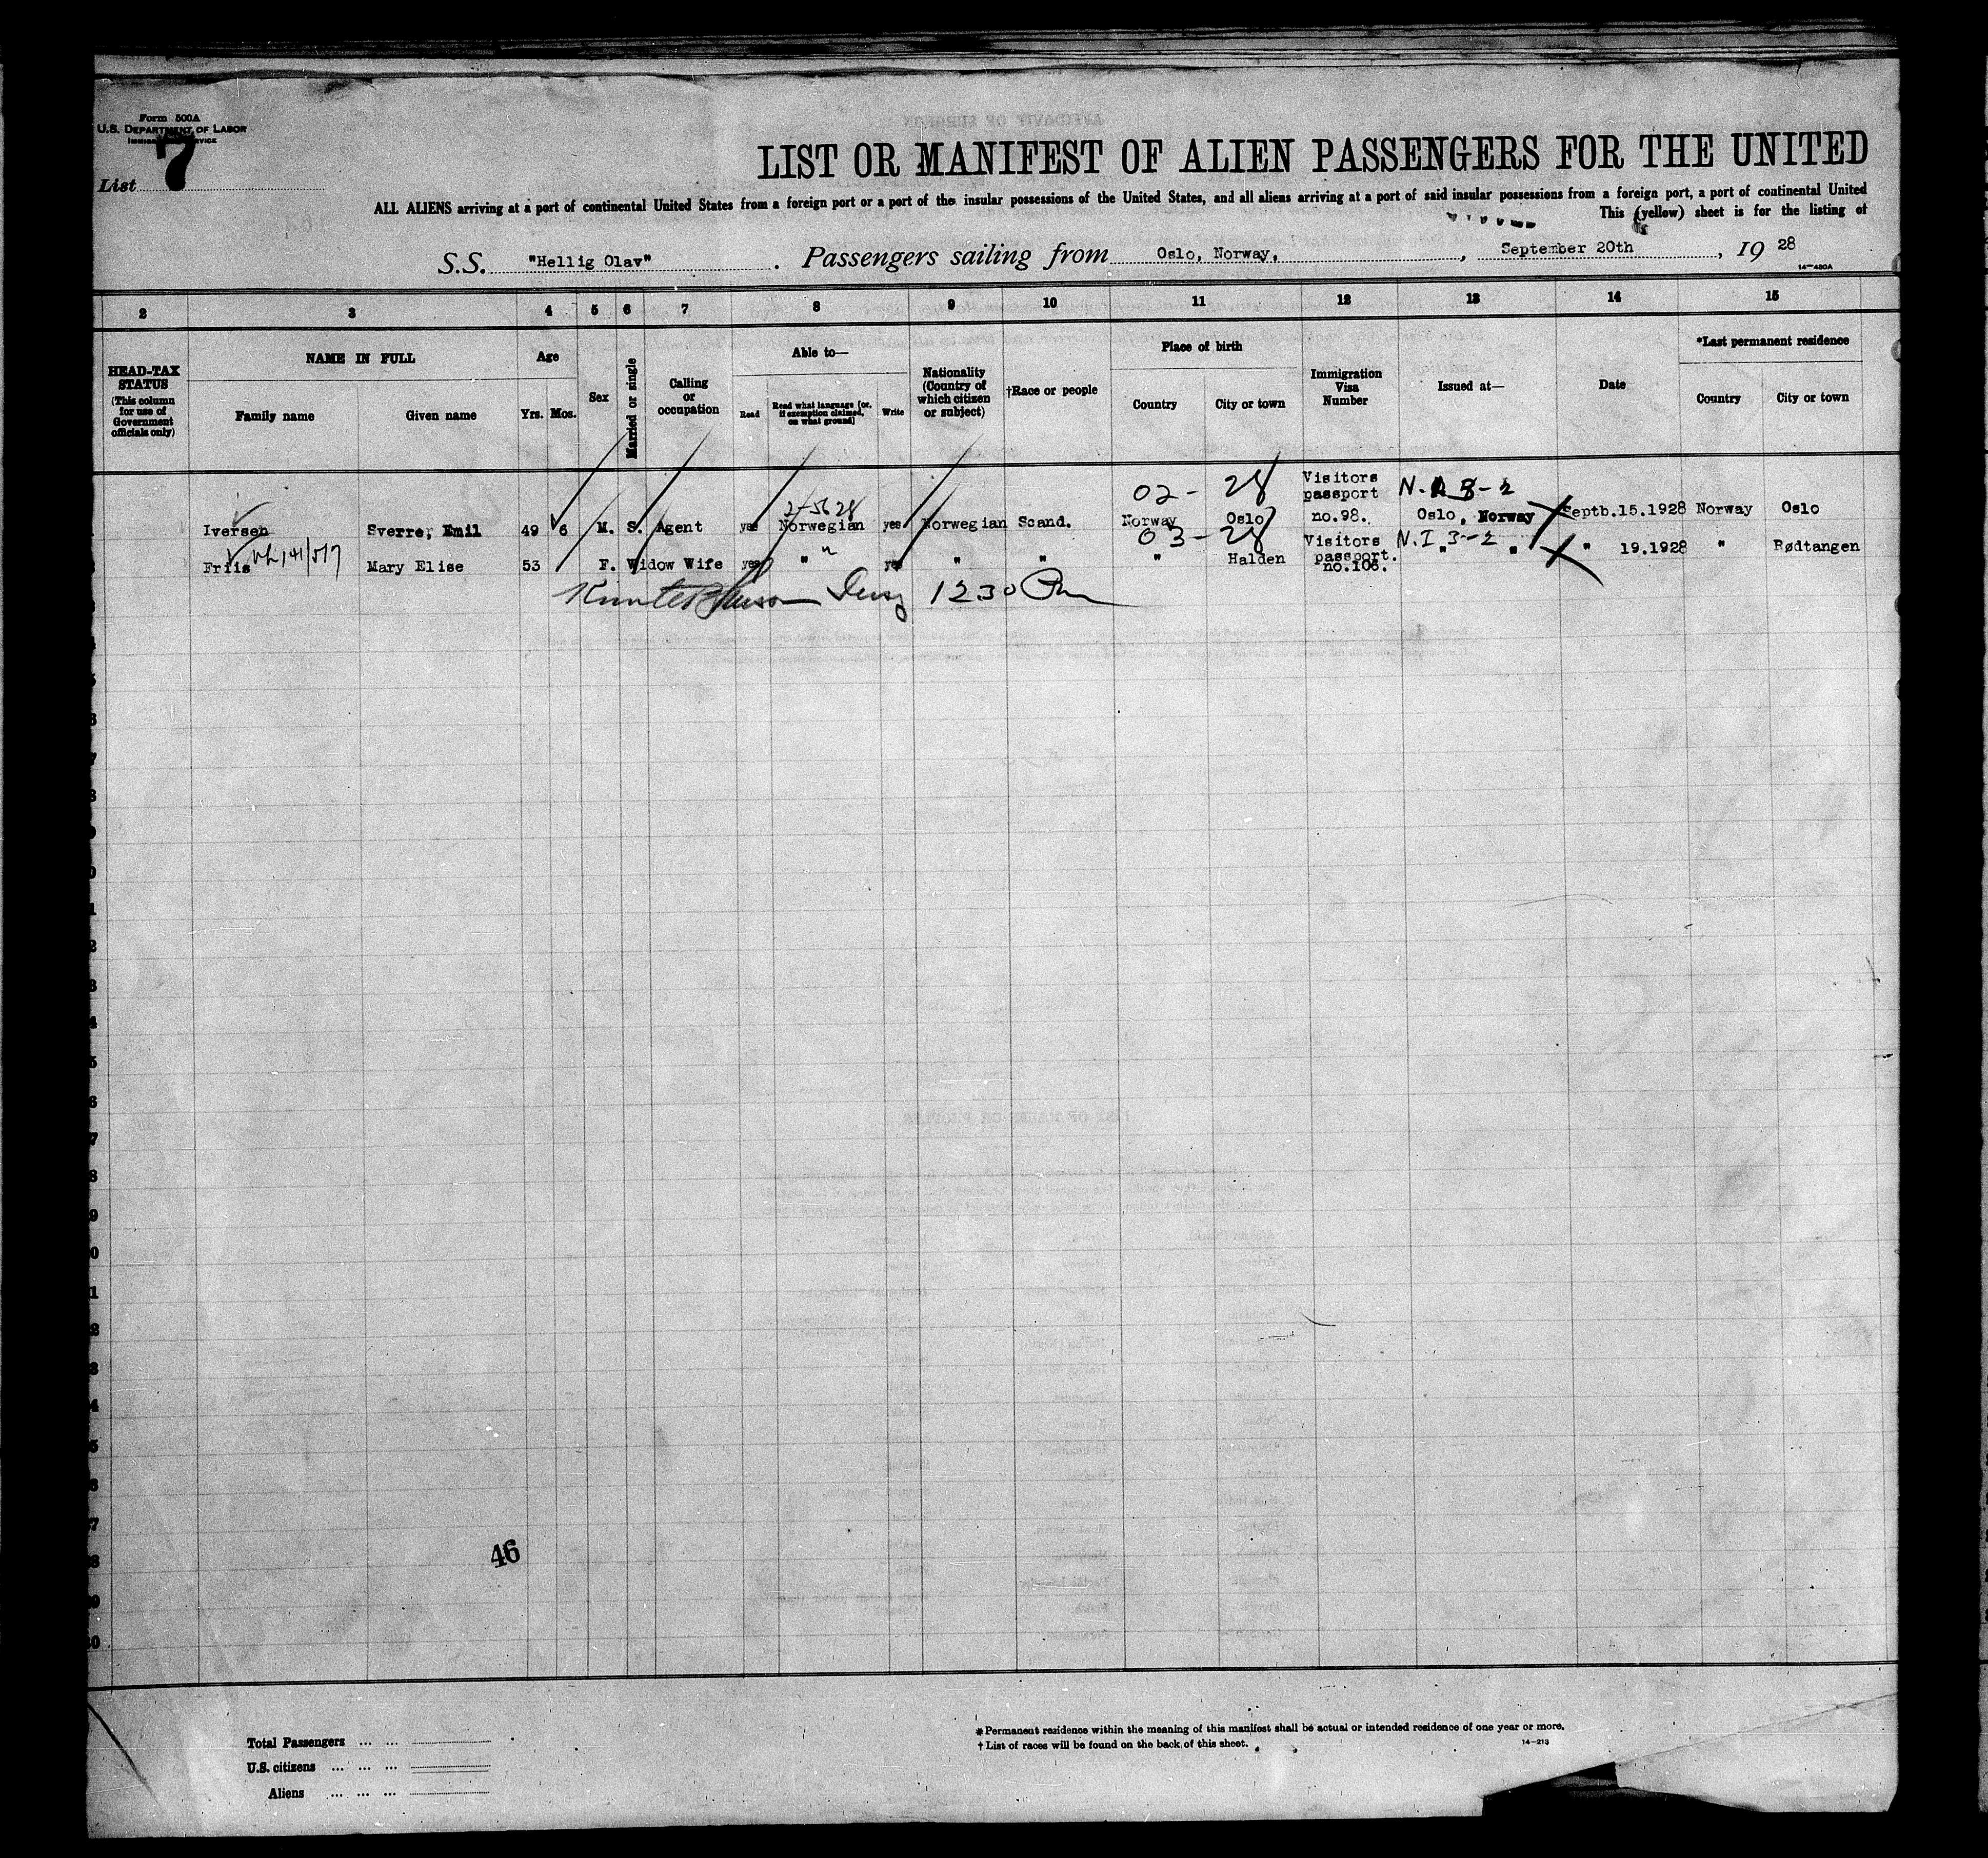 Form 500A
U.S. DEPARTMENT OF LABOR
IMMIGRATION SERVICE
List 7
LIST OR MANIFEST OF ALIEN PASSENGERS FOR THE UNITED
ALL ALIENS arriving at a port of continental United States from a foreign port or a port of the insular possessions of the United States, and all aliens arriving at a port of said insular possessions from a foreign port, a port of continental United
This (yellow) sheet is for the listing of
S.S. "Hellig Olav". Passengers sailing from Oslo, Norway, , September 20th , 19 28
14—480A
2 3 4 5 6 7 8 9 10 11 12 13 14 15
HEAD-TAX STATUS (This column for use of Government officials only)
NAME IN FULL
Family name Given name
Age
Yrs. Mos.
Sex
Married or single
Calling or occupation
Able to—
Read Read what language [or, if exemption claimed, on what ground] Write
Nationality (Country of which citizen or subject)
†Race or people
Place of birth
Country City or town
Immigration Visa Number
Issued at—
Date
*Last permanent residence
Country City or town
02- 28 Visitors passport
Iversen Sverre, Emil 49 6 M. S. Agent yes Norwegian yes Norwegian Scand. Norway Oslo no.98. Oslo, Norway Septb.15.1928 Norway Oslo
03-28 Visitors passport. N.I 3-2
Friis Mary Elise 53 F. Widow Wife yes " yes " " " Halden no.106. " " " 19.1928 " Rødtangen
1230 Pm
46
Total Passengers ... ...
U.S. citizens ... ... ...
Aliens ... ... ...
* Permanent residence within the meaning of this manifest shall be actual or intended residence of one year or more.
† List of races will be found on the back of this sheet.
14—213